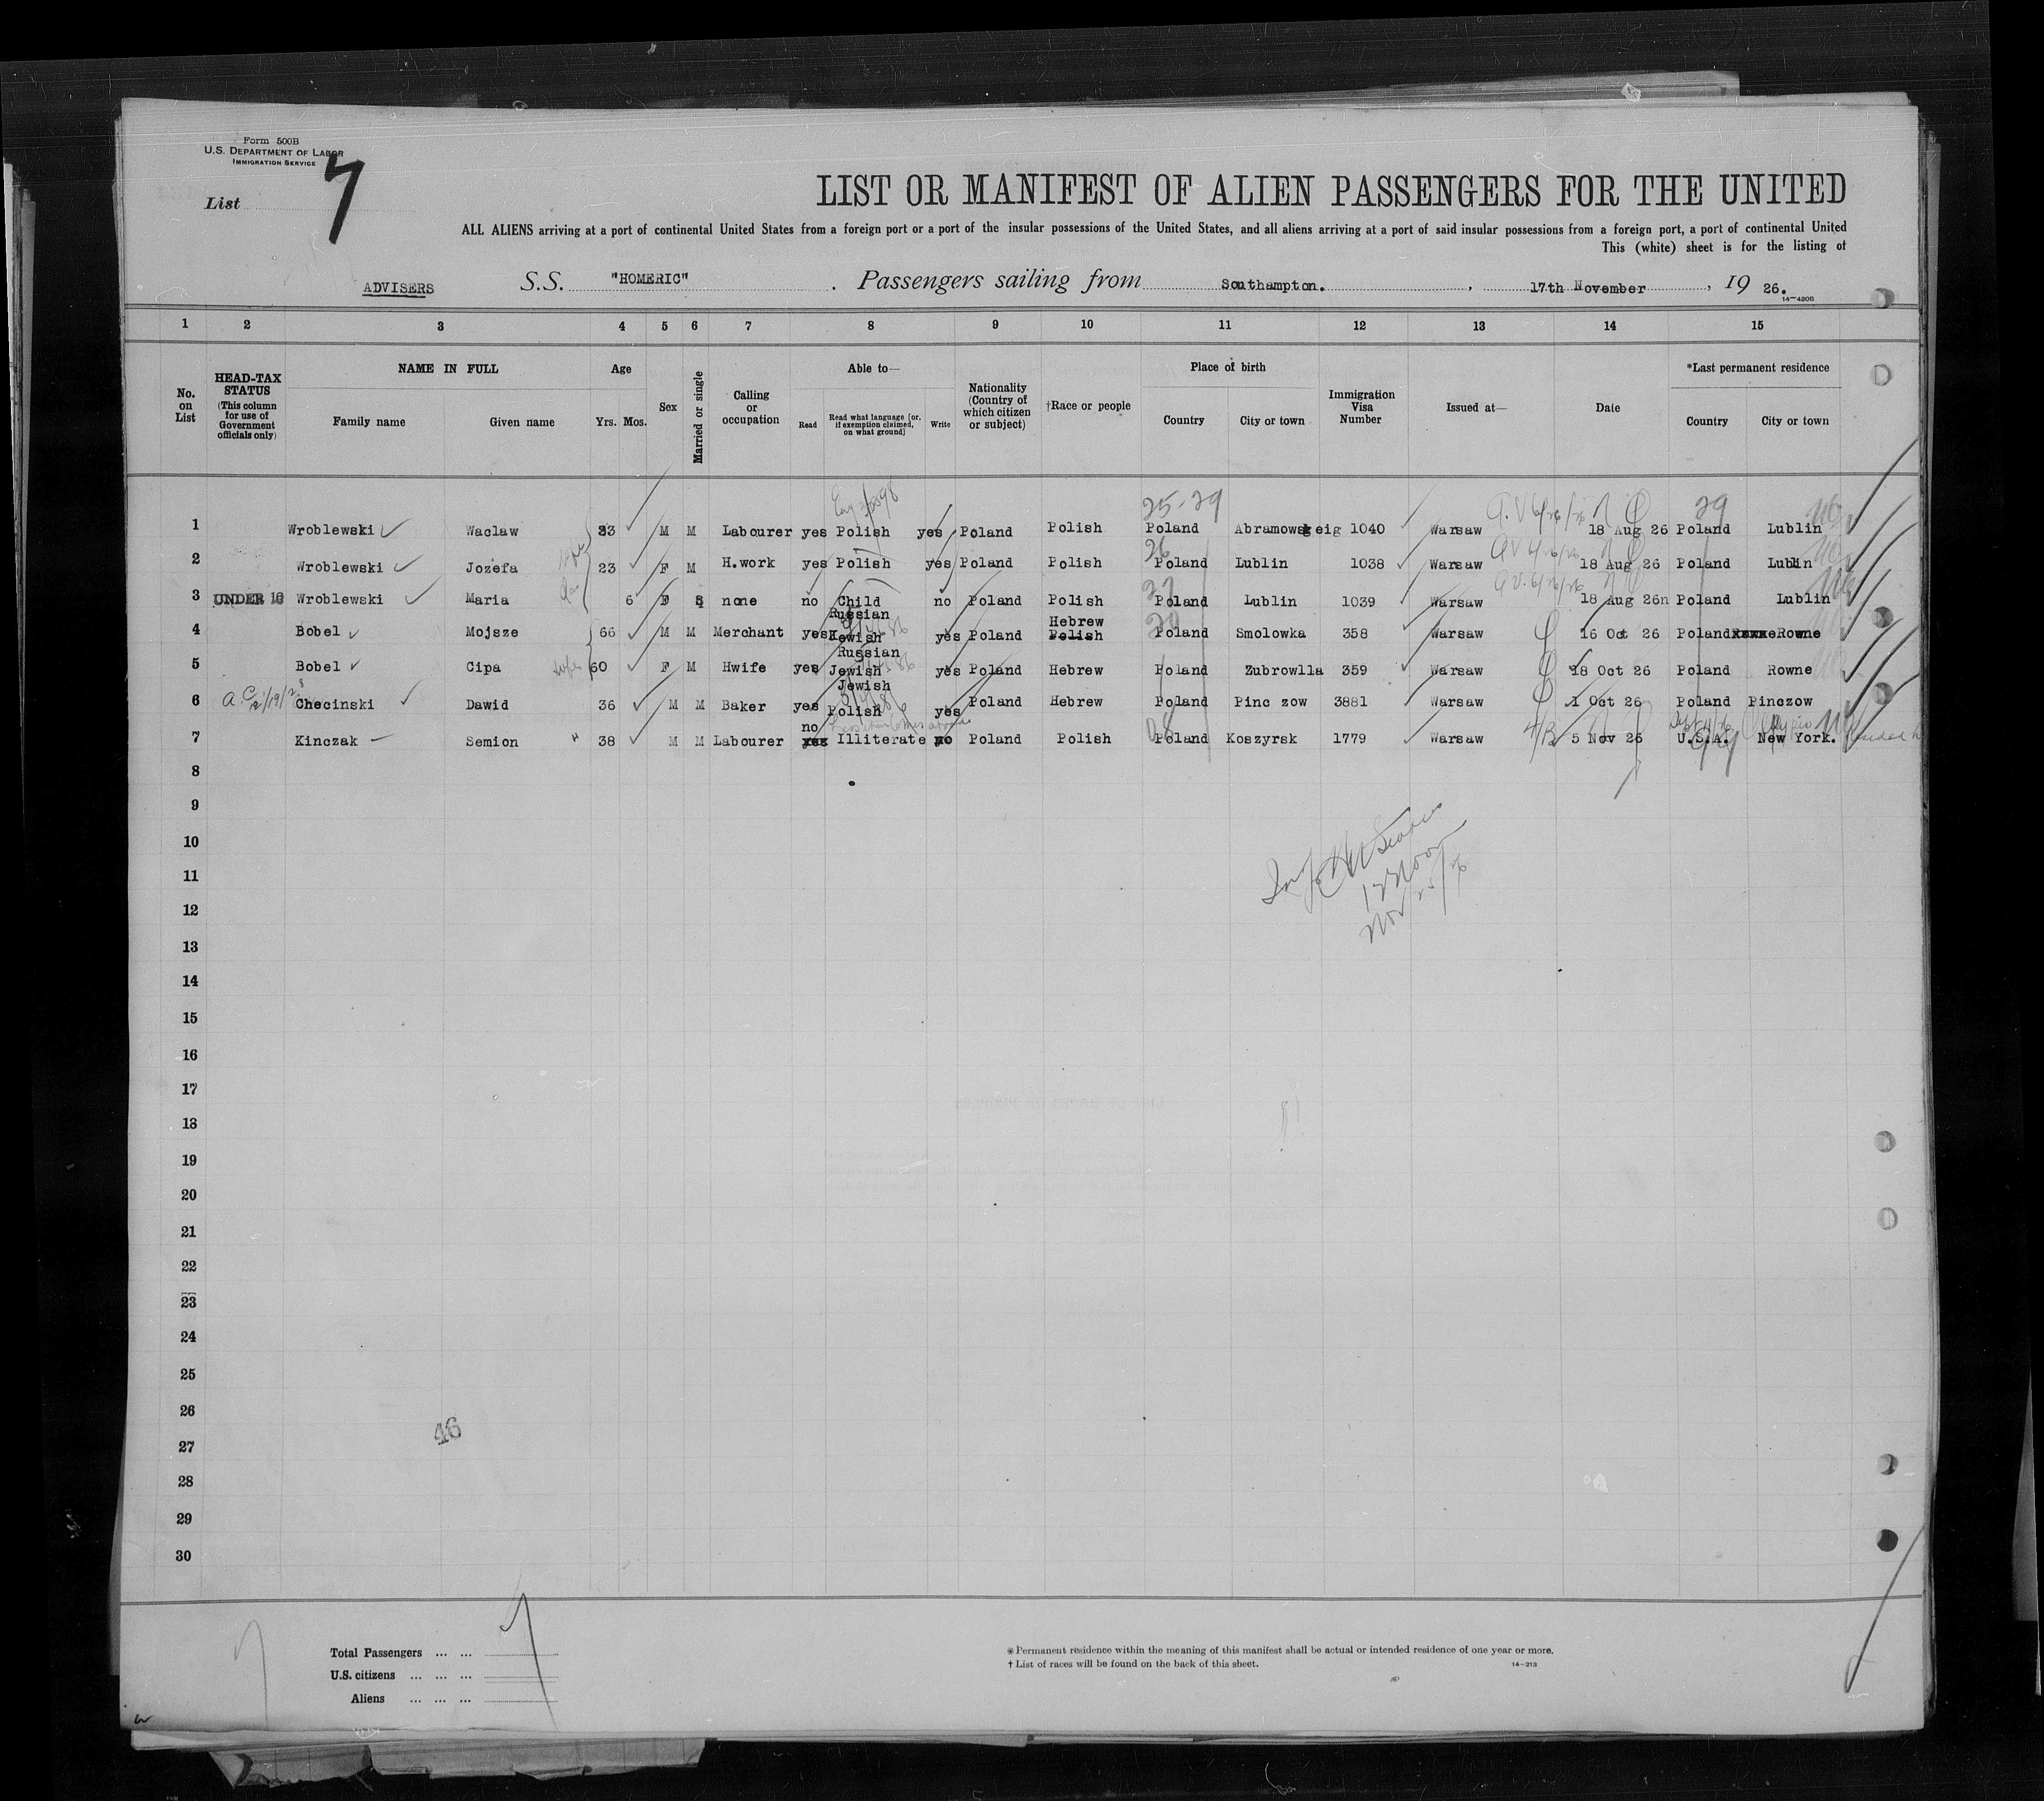 Form 500B
U.S. DEPARTMENT OF LABOR
IMMIGRATION SERVICE
List 7
LIST OR MANIFEST OF ALIEN PASSENGERS FOR THE UNITED
ALL ALIENS arriving at a port of continental United States from a foreign port or a port of the insular possessions of the United States, and all aliens arriving at a port of said insular possessions from a foreign port, a port of continental United
This (white) sheet is for the listing of
ADVISERS S.S. "HOMERIC" . Passengers sailing from Southampton. , 17th November , 19 26.
14—430B
1 2 3 4 5 6 7 8 9 10 11 12 13 14 15
No. on List
HEAD-TAX STATUS (This column for use of Government officials only)
NAME IN FULL
Family name Given name
Age
Yrs. Mos.
Sex
Married or single
Calling or occupation
Able to—
Read Read what language [or, if exemption claimed, on what ground] Write
Nationality (Country of which citizen or subject)
†Race or people
Place of birth
Country City or town
Immigration Visa Number
Issued at—
Date
*Last permanent residence
Country City or town
25-29 29
1 Wroblewski Waclaw 23 M M Labourer yes Polish yes Poland Polish Poland 1040 Warsaw 18 Aug 26 Poland Lublin
26
2 Wroblewski Jozefa 23 F M H.work yes Polish yes Poland Polish Poland Lublin 1038 Warsaw 18 Aug 26 Poland Lublin
27
3 UNDER 16 Wroblewski Maria 6 F S none no Child no Poland Polish Poland Lublin 1039 Warsaw 18 Aug 26n Poland Lublin
Russian Hebrew
4 Bobel Mojsze 66 M M Merchant yes Jewish yes Poland Polish Poland Smolowka 358 Warsaw 16 Oct 26 Poland Rowne
Russian
5 Bobel Cipa wife 60 F M Hwife yes Jewish yes Poland Hebrew Poland Zubrowlla 359 Warsaw 18 Oct 26 Poland Rowne
Jewish
6 Checinski Dawid 36 M M Baker yes Polish yes Poland Hebrew Poland Pinc zow 3881 Warsaw 1 Oct 26 Poland Pinczow
no
7 Kinczak Semion 38 M M Labourer yes Illiterate no Poland Polish Poland Koszyrsk 1779 Warsaw 5 Nov 26 U.S.A. New York.
8
9
10
11
12 Noon
12
Nov 25/26
13
14
15
16
17
18
19
20
21
22
23
24
25
26
46
27
28
29
30
Total Passengers ... ... 7
U.S. citizens ... ... ...
Aliens ... ... ...
*Permanent residence within the meaning of this manifest shall be actual or intended residence of one year or more.
†List of races will be found on the back of this sheet. 14—213